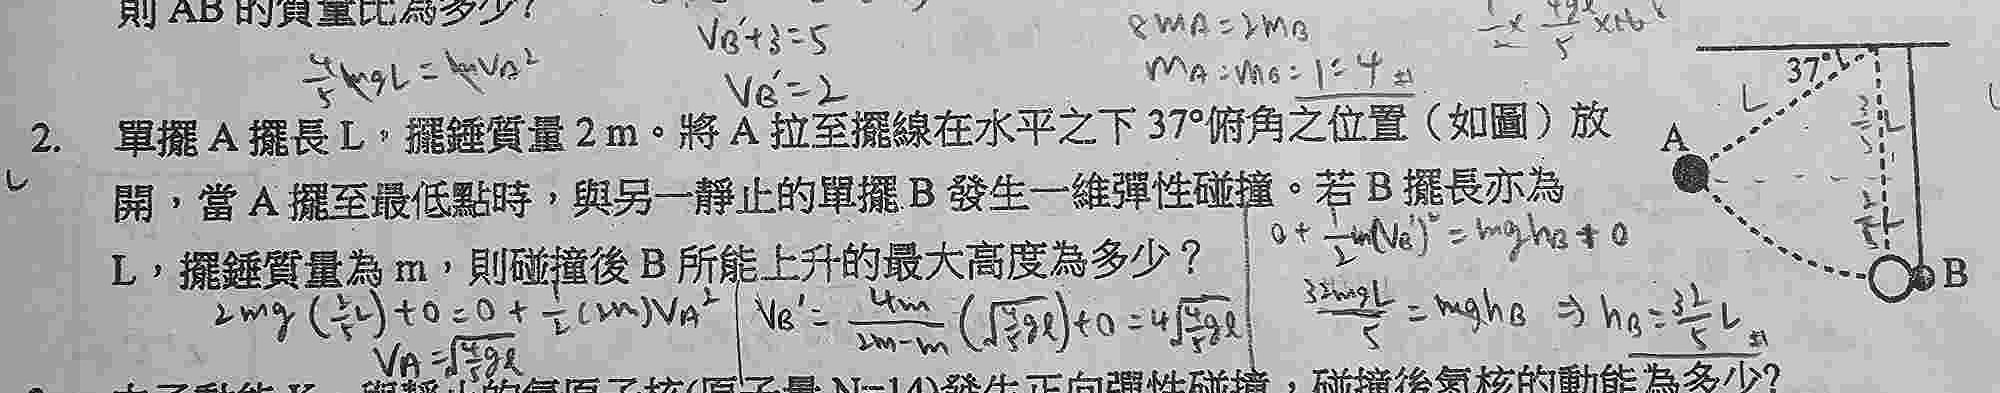 則 AB 的質量比為多少?
VB'+3=5
VB'=2
8mA=2mB
mA:mB=1:4 #
4/5 mgL = mVA²
2. 單擺 A 擺長 L，擺錘質量 2 m。將 A 拉至擺線在水平之下 37°俯角之位置（如圖）放
開，當 A 擺至最低點時，與另一靜止的單擺 B 發生一維彈性碰撞。若 B 擺長亦為
L，擺錘質量為 m，則碰撞後 B 所能上升的最大高度為多少？
2mg(2/5 L)+0=0+1/2(2m)VA²
VA=√(4/5 gl)
VB'=4m/(2m-m) (√(4/5 gl))+0=4√(4/5 gl)
0+1/2 m(VB')²=mghB+0
32mgL/5=mghB ⇒ hB=32/5 L #
37°
L
3/5 L
2/5 L
A
B
(原子量 N=14)發生正向彈性碰撞，碰撞後氮核的動能為多少?